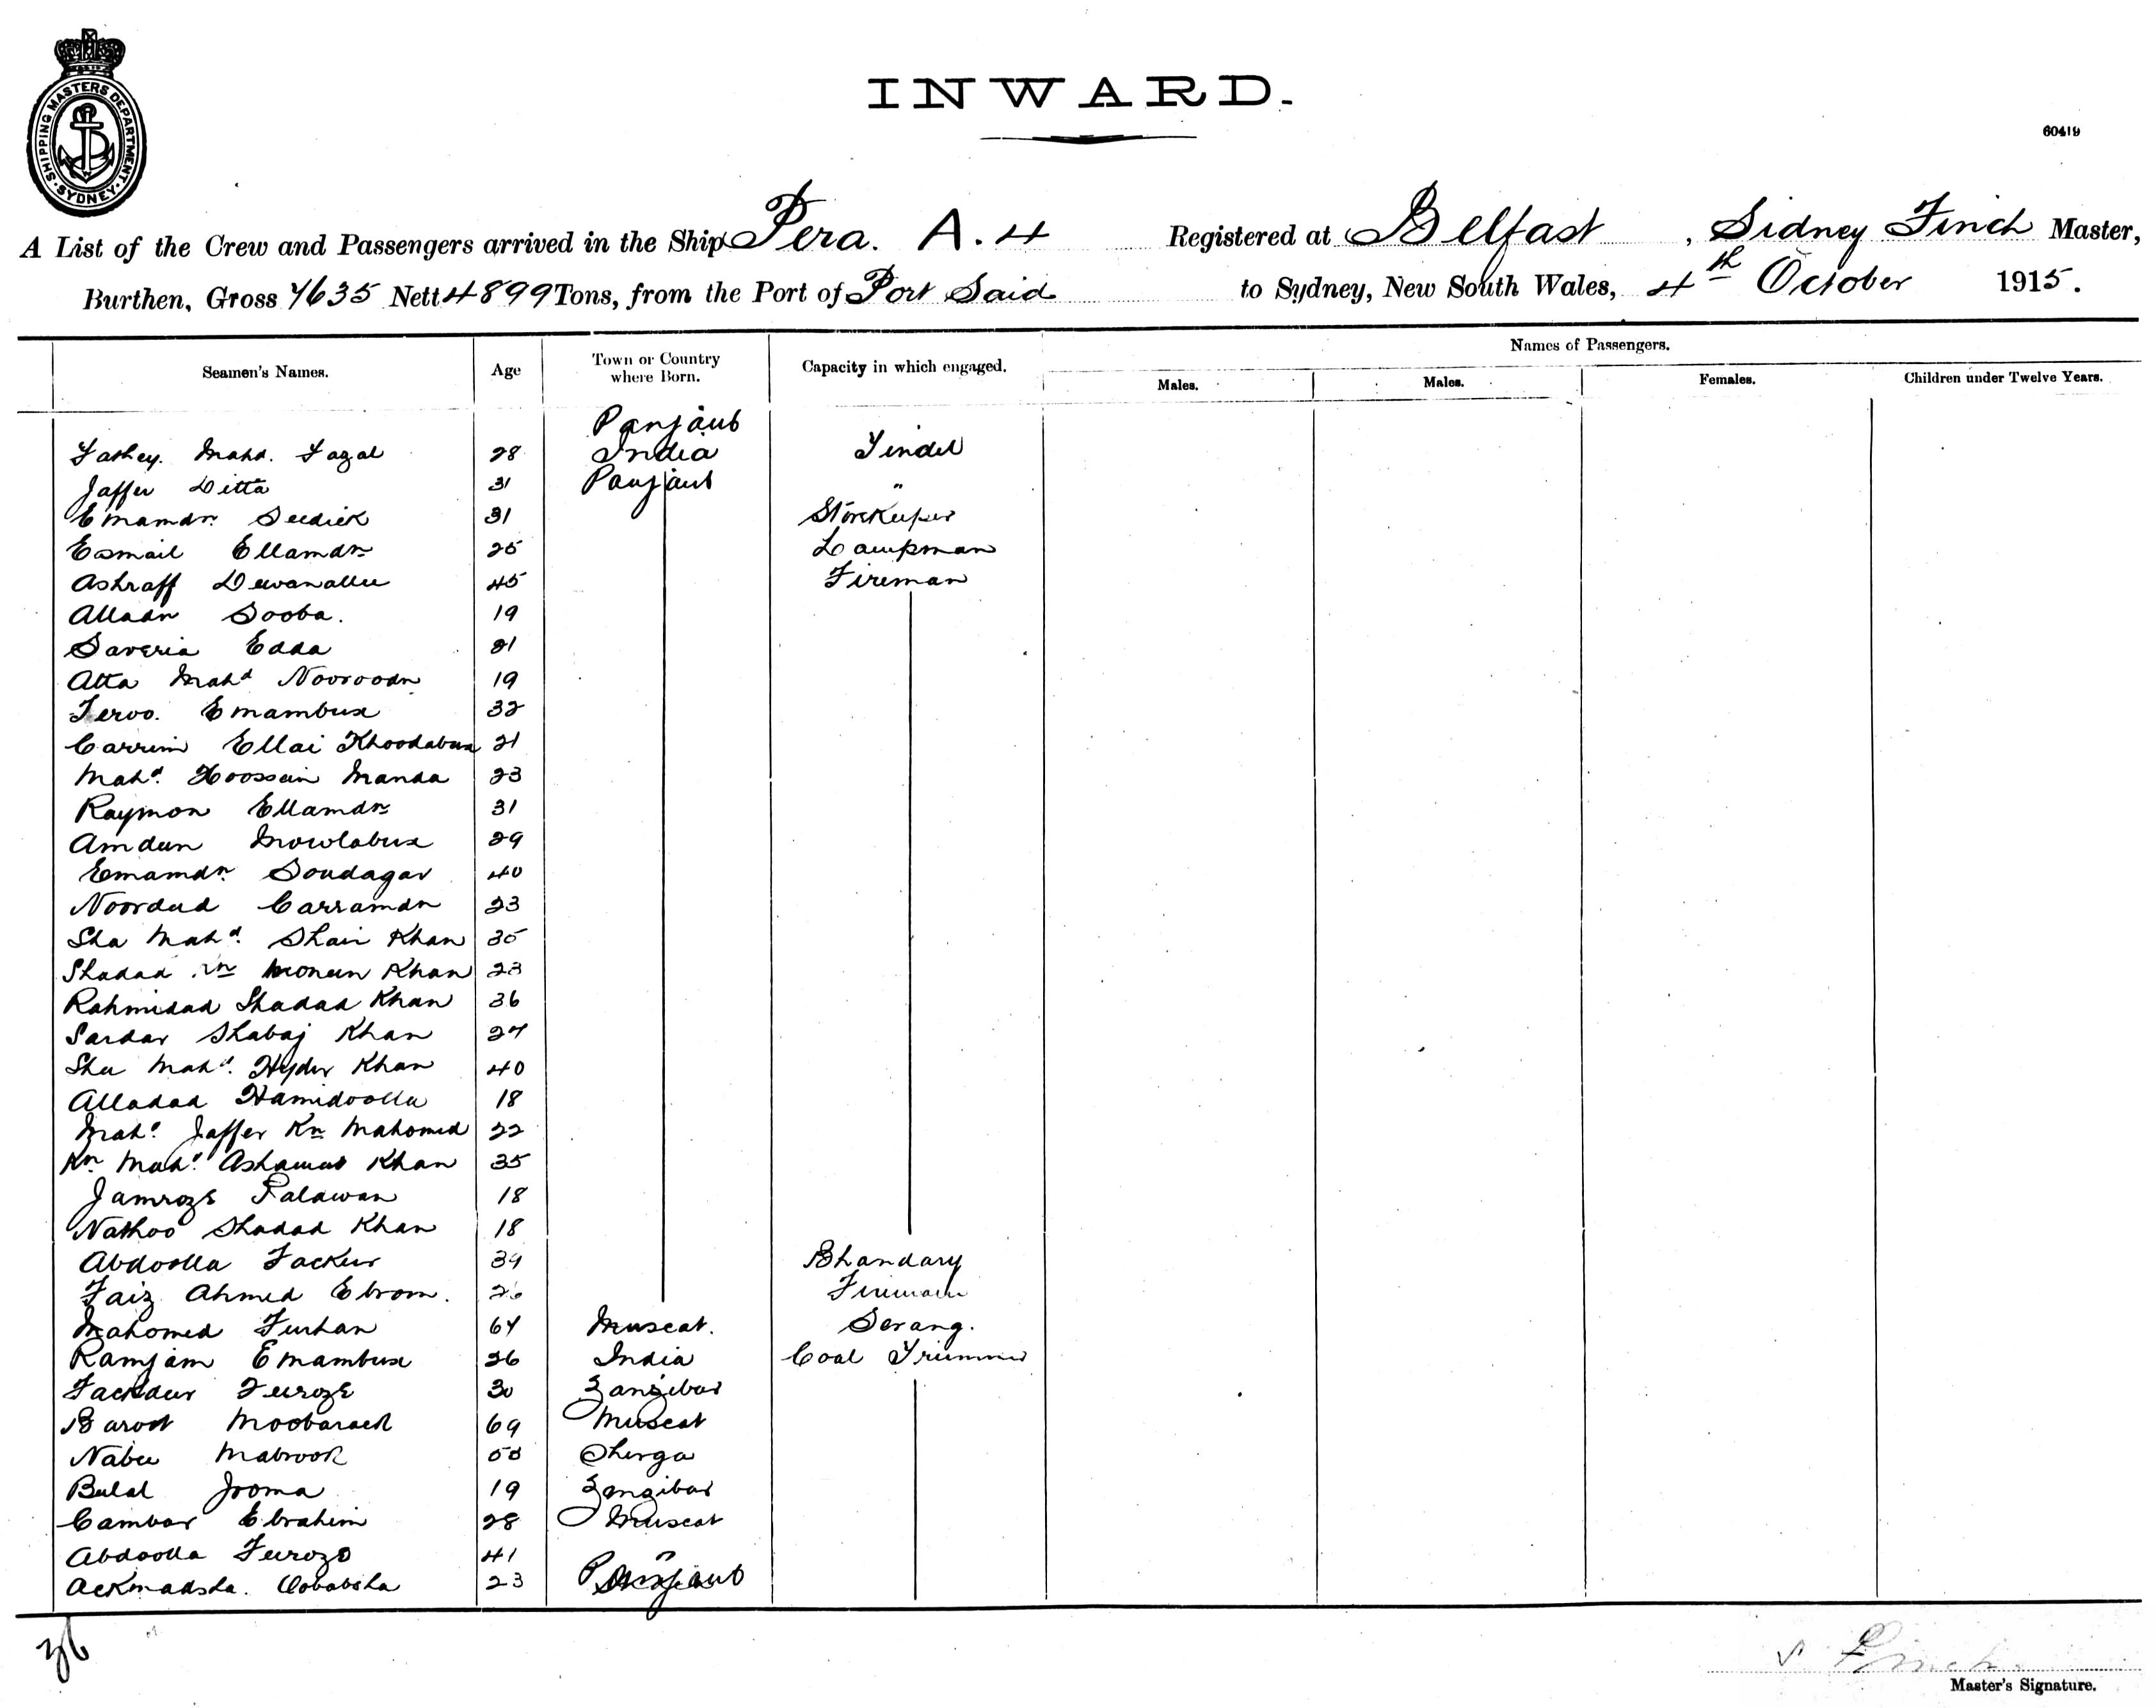 SHIPPING MASTERS DEPARTMENT · SYDNEY ·
INWARD.
60419
A List of the Crew and Passengers arrived in the Ship Pera. A. 4 Registered at Belfast, Sidney Finch Master,
Burthen, Gross 7635 Nett 4899 Tons, from the Port of Port Said to Sydney, New South Wales, 4th October 1915.
Names of Passengers.
Seamen's Names. Age Town or Country where Born. Capacity in which engaged. Males. Males. Females. Children under Twelve Years.
Panjaub
Fathey. Mahd. Fazal 28 India Tindel
Jaffer Ditta 31 Panjaub "
Emamdn Seedick 31 Storekeeper
Esmail Ellamdn 25 Lampman
Ashraff Dewanallee 45 Fireman
Alladn Sooba. 19
Saveria Edda 21
Atta Mahd Nooroodn 19
Feroo. Emambux 32
Carrim Ellai Khoodabux 21
Mahd. Hoossein Manda 23
Raymon Ellamdn 31
Amdeen Mowlabux 29
Emamdn Soudagar 40
Noordad Carramdn 23
Sha Mahd. Shair Khan 35
Shadad Kn Moneen Khan 23
Rahmidad Shadad Khan 36
Sardar Shabaj Khan 27
Sher Mahd. Hyder Khan 40
Alladad Hamidoolla 18
Mahd. Jaffer Kn Mahomed 22
Kn Mahd. Khan 35
Jamroze Palawan 18
Nathoo Shadad Khan 18
Abdoolla Fackur 39 Bhandary
Faiz Ahmed Ebrom. 26 Fireman
Mahomed Furhan 64 Muscat. Serang.
Ramjam Emambux 26 India Coal Trimmer
Feeroze 30 Zanzibar
Baroot Moobarack 69 Muscat
Nabee Mabrook 50 Sherga
Belal Jooma 19 Zanzibar
Cambar Ebrahim 28 Muscat
Abdoolla Feeroze 41 "
Ackmadsha. 23 Panjaub
36
S Finch
Master's Signature.